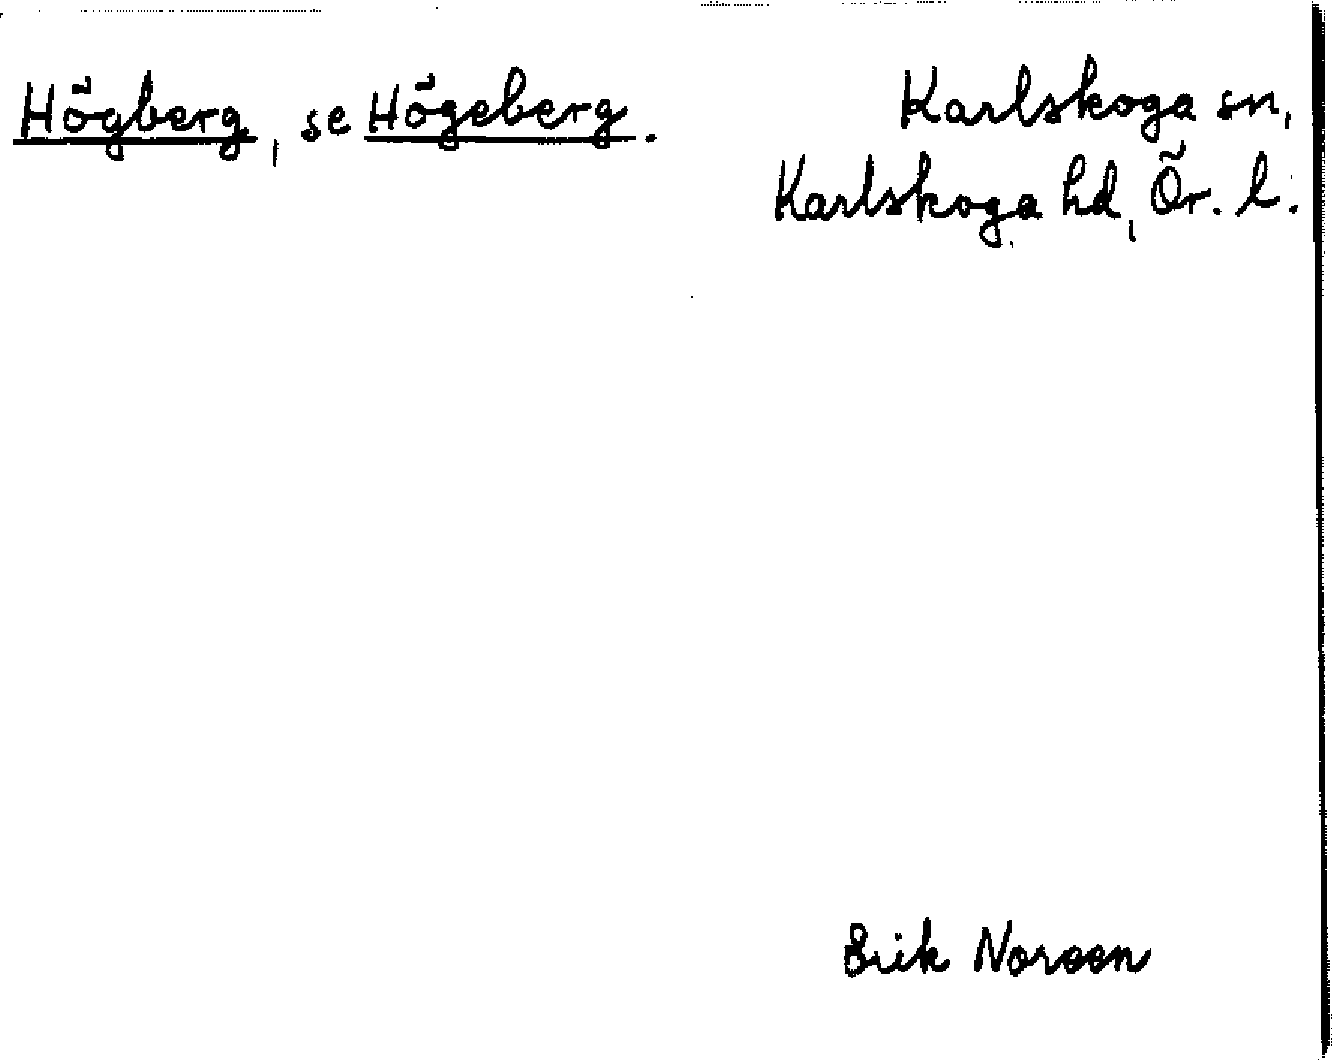 Högberg, se Högeberg.
Karlskoga sn,
Karlskoga hd, Ör. l.
Erik Noreen